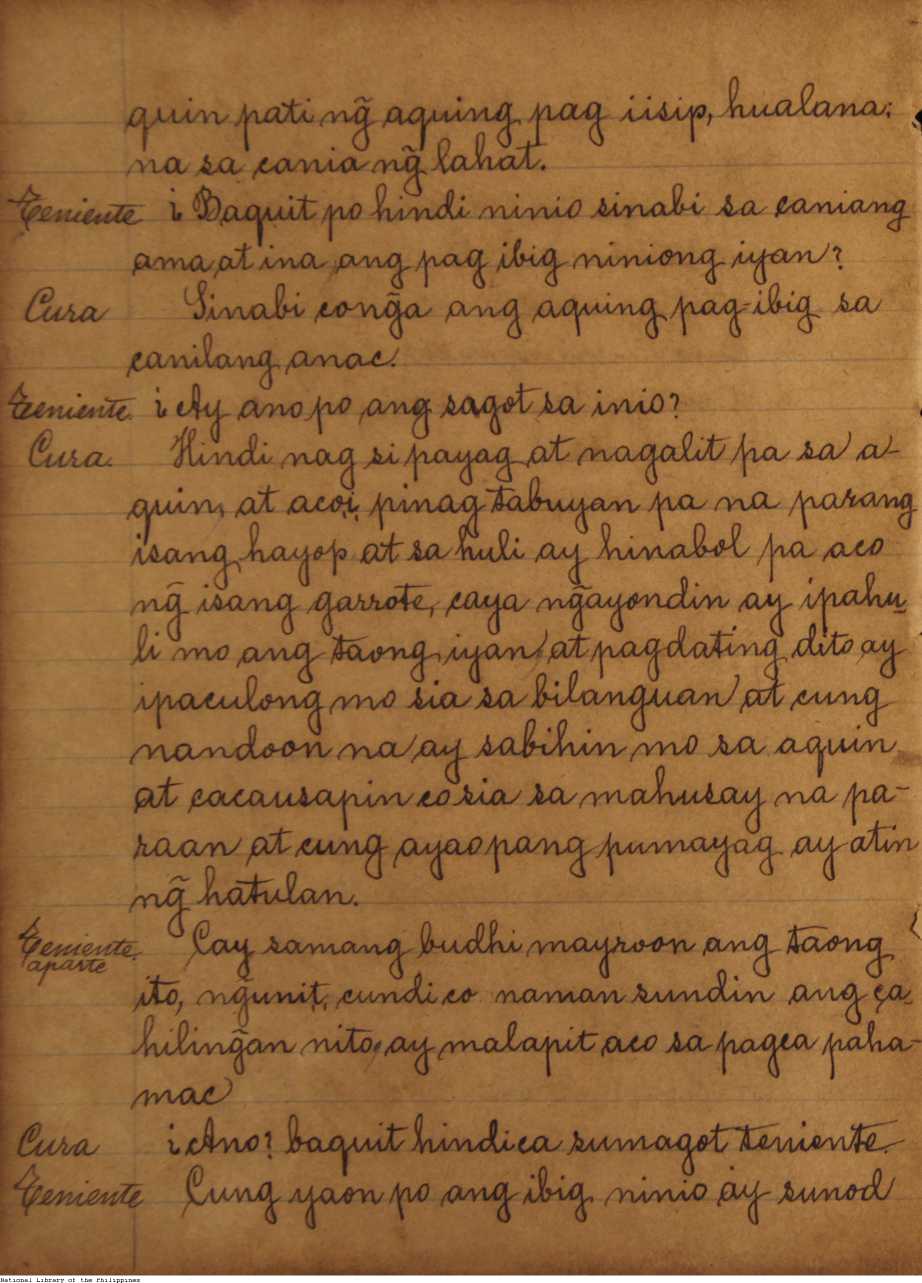 quin pati ng̃ aquing pag iisip, hualana;
na sa cania ng̃ lahat.
Teniente ¿ Baquit po hindi ninio sinabi sa caniang
ama at ina ang pag ibig niniong iyan?
Cura Sinabi cong̃a ang aquing pag-ibig sa
canilang anac.
Teniente. ¿ Ay ano po ang sagot sa inio?
Cura. Hindi nag si payag at nagalit pa sa a-
quin, at acoi, pinag tabuyan pa na parang
isang hayop at sa huli ay hinabol pa aco
ng̃ isang garrote, caya ng̃ayondin ay ipahu-
li mo ang taong iyan, at pagdating dito ay
ipaculong mo sia sa bilanguan at cung
nandoon na ay sabihin mo sa aquin
at cacausapin co sia sa mahusay na pa-
raan at cung ayao pang pumayag ay atin
ng̃ hatulan.
Teniente. Cay samang budhi mayroon ang taong
aparte
ito, ng̃unit, cundi co naman sundin ang ca-
hiling̃an nito, ay malapit aco sa pagca paha-
mac
Cura ¿ Ano? baquit hindi ca sumagot teniente.
Teniente Cung yaon po ang ibig ninio ay sunod
National Library of the Philippines